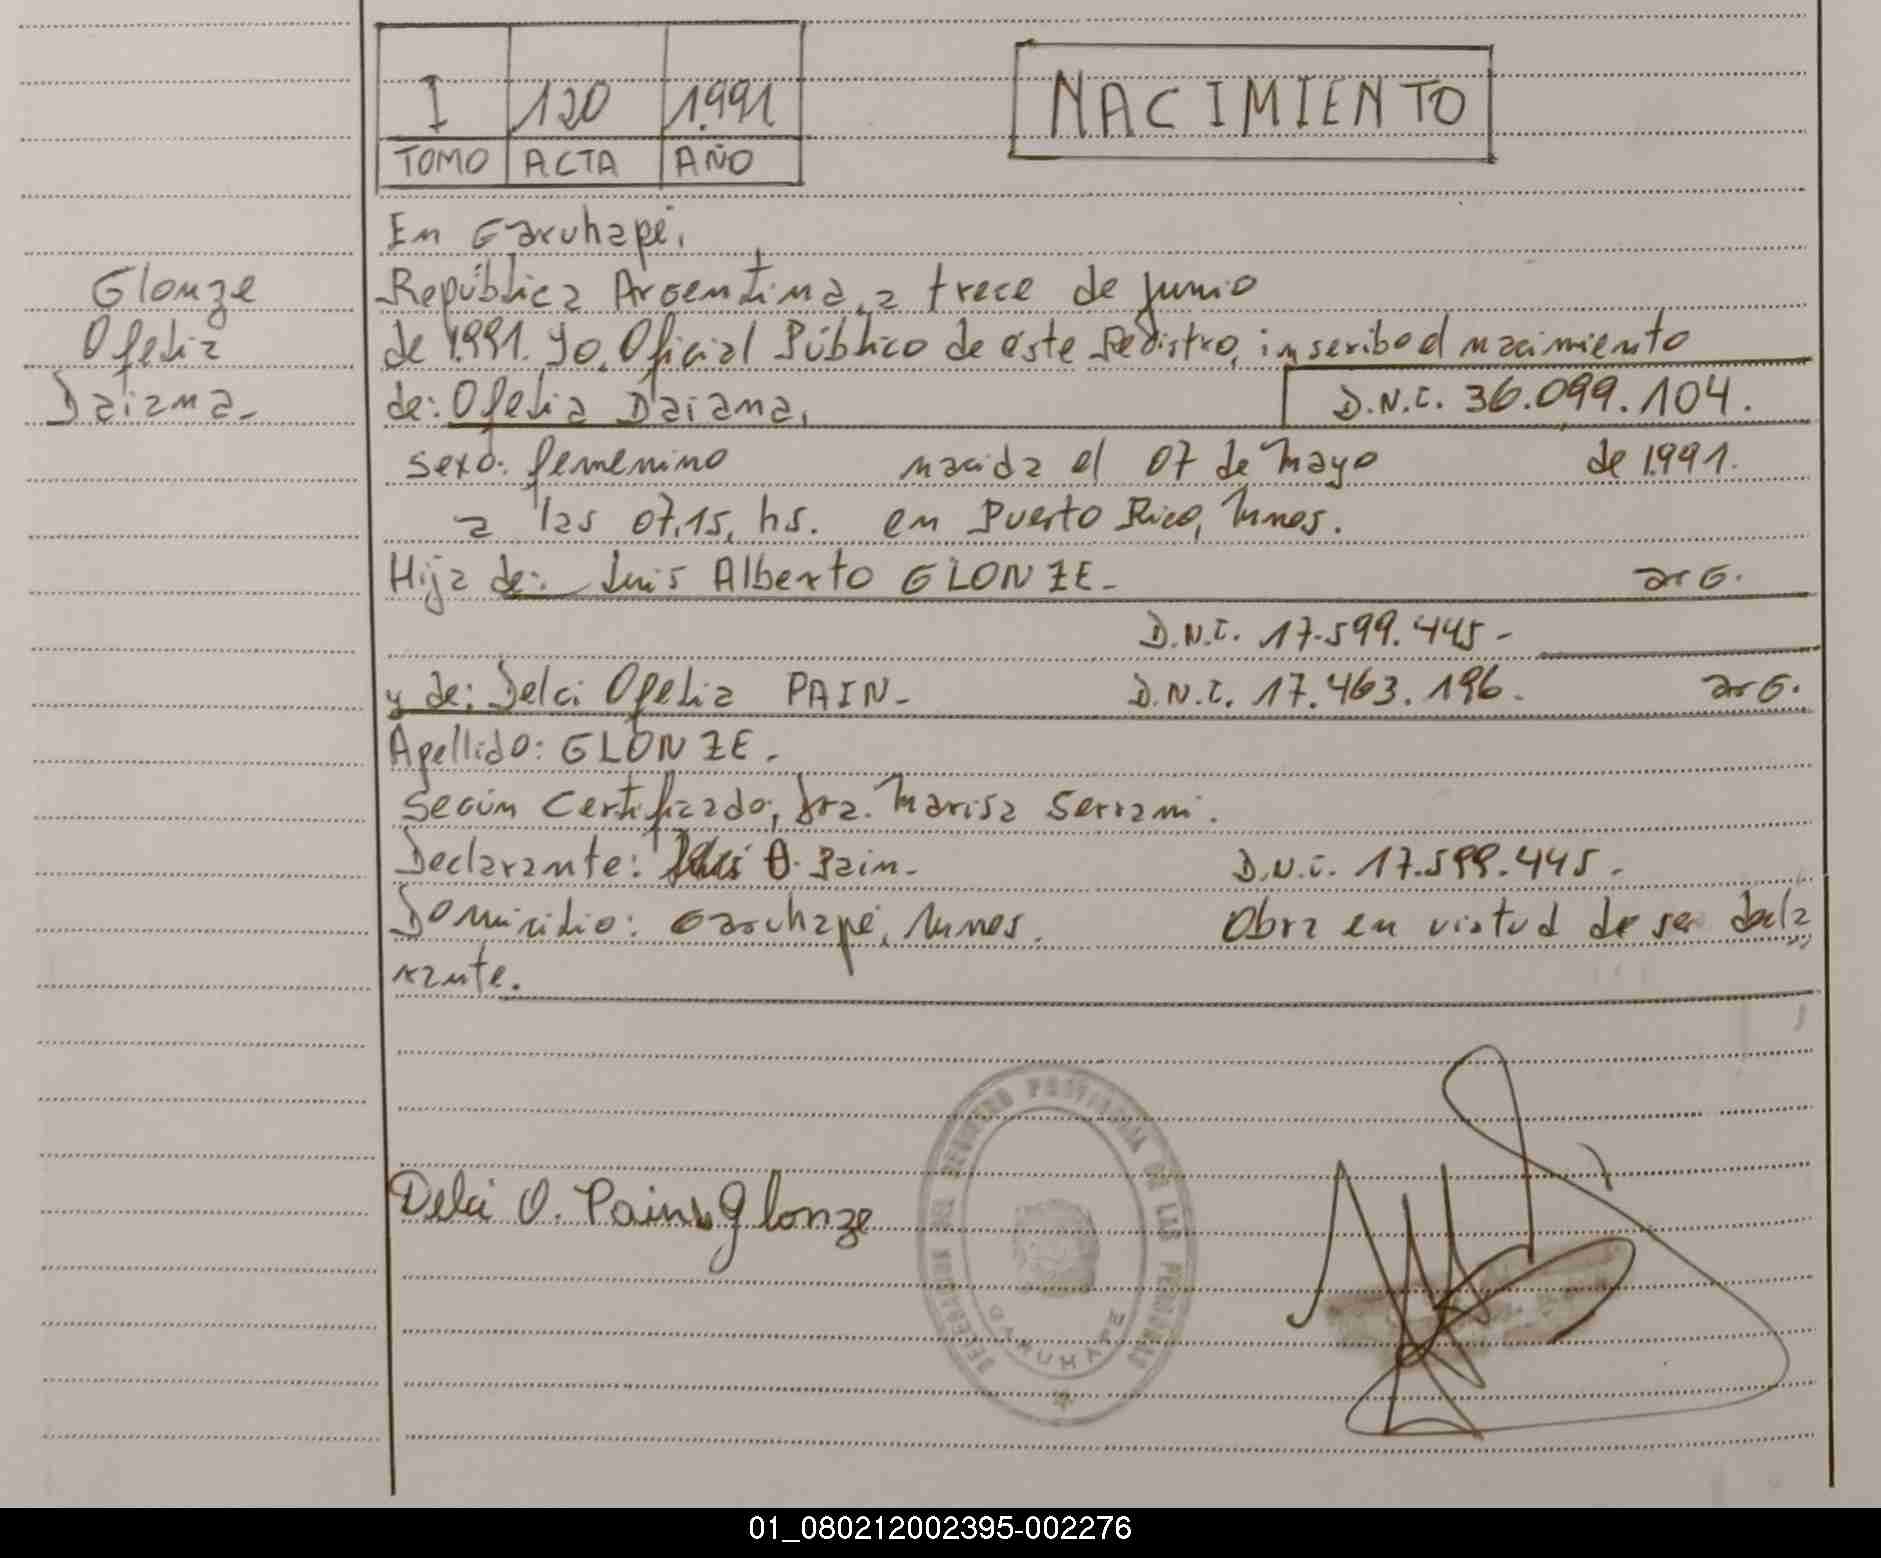 I 120 1.991
TOMO ACTA AÑO
NACIMIENTO
Glonze
Ofelia
Daiana.
En Garuhapé,
República Argentina, a trece de Junio
de 1.991. yo, Oficial Público de este Registro, inscribo el nacimiento
de: Ofelia Daiana, D.N.I. 36.099.104.
sexo: femenino nacida el 07 de Mayo de 1991.
a las 07,15, hs. en Puerto Rico, Mnes.
Hija de: Luis Alberto GLONZE. arG.
D.N.I. 17.599.445-
y de: Delci Ofelia PAIN- D.N.I. 17.463.196. arG.
Apellido: GLONZE.
según Certificado, Dra. Marisa Serrani.
Declarante: Delci O. Pain. D.N.I. 17.599.445.
Domicilio: Garuhapé, Mnes. Obra en virtud de ser decla
rante.
Delci O. Pain Glonze
REGISTRO PROVINCIAL DE LAS PERSONAS
GARUHAPE
01_080212002395-002276